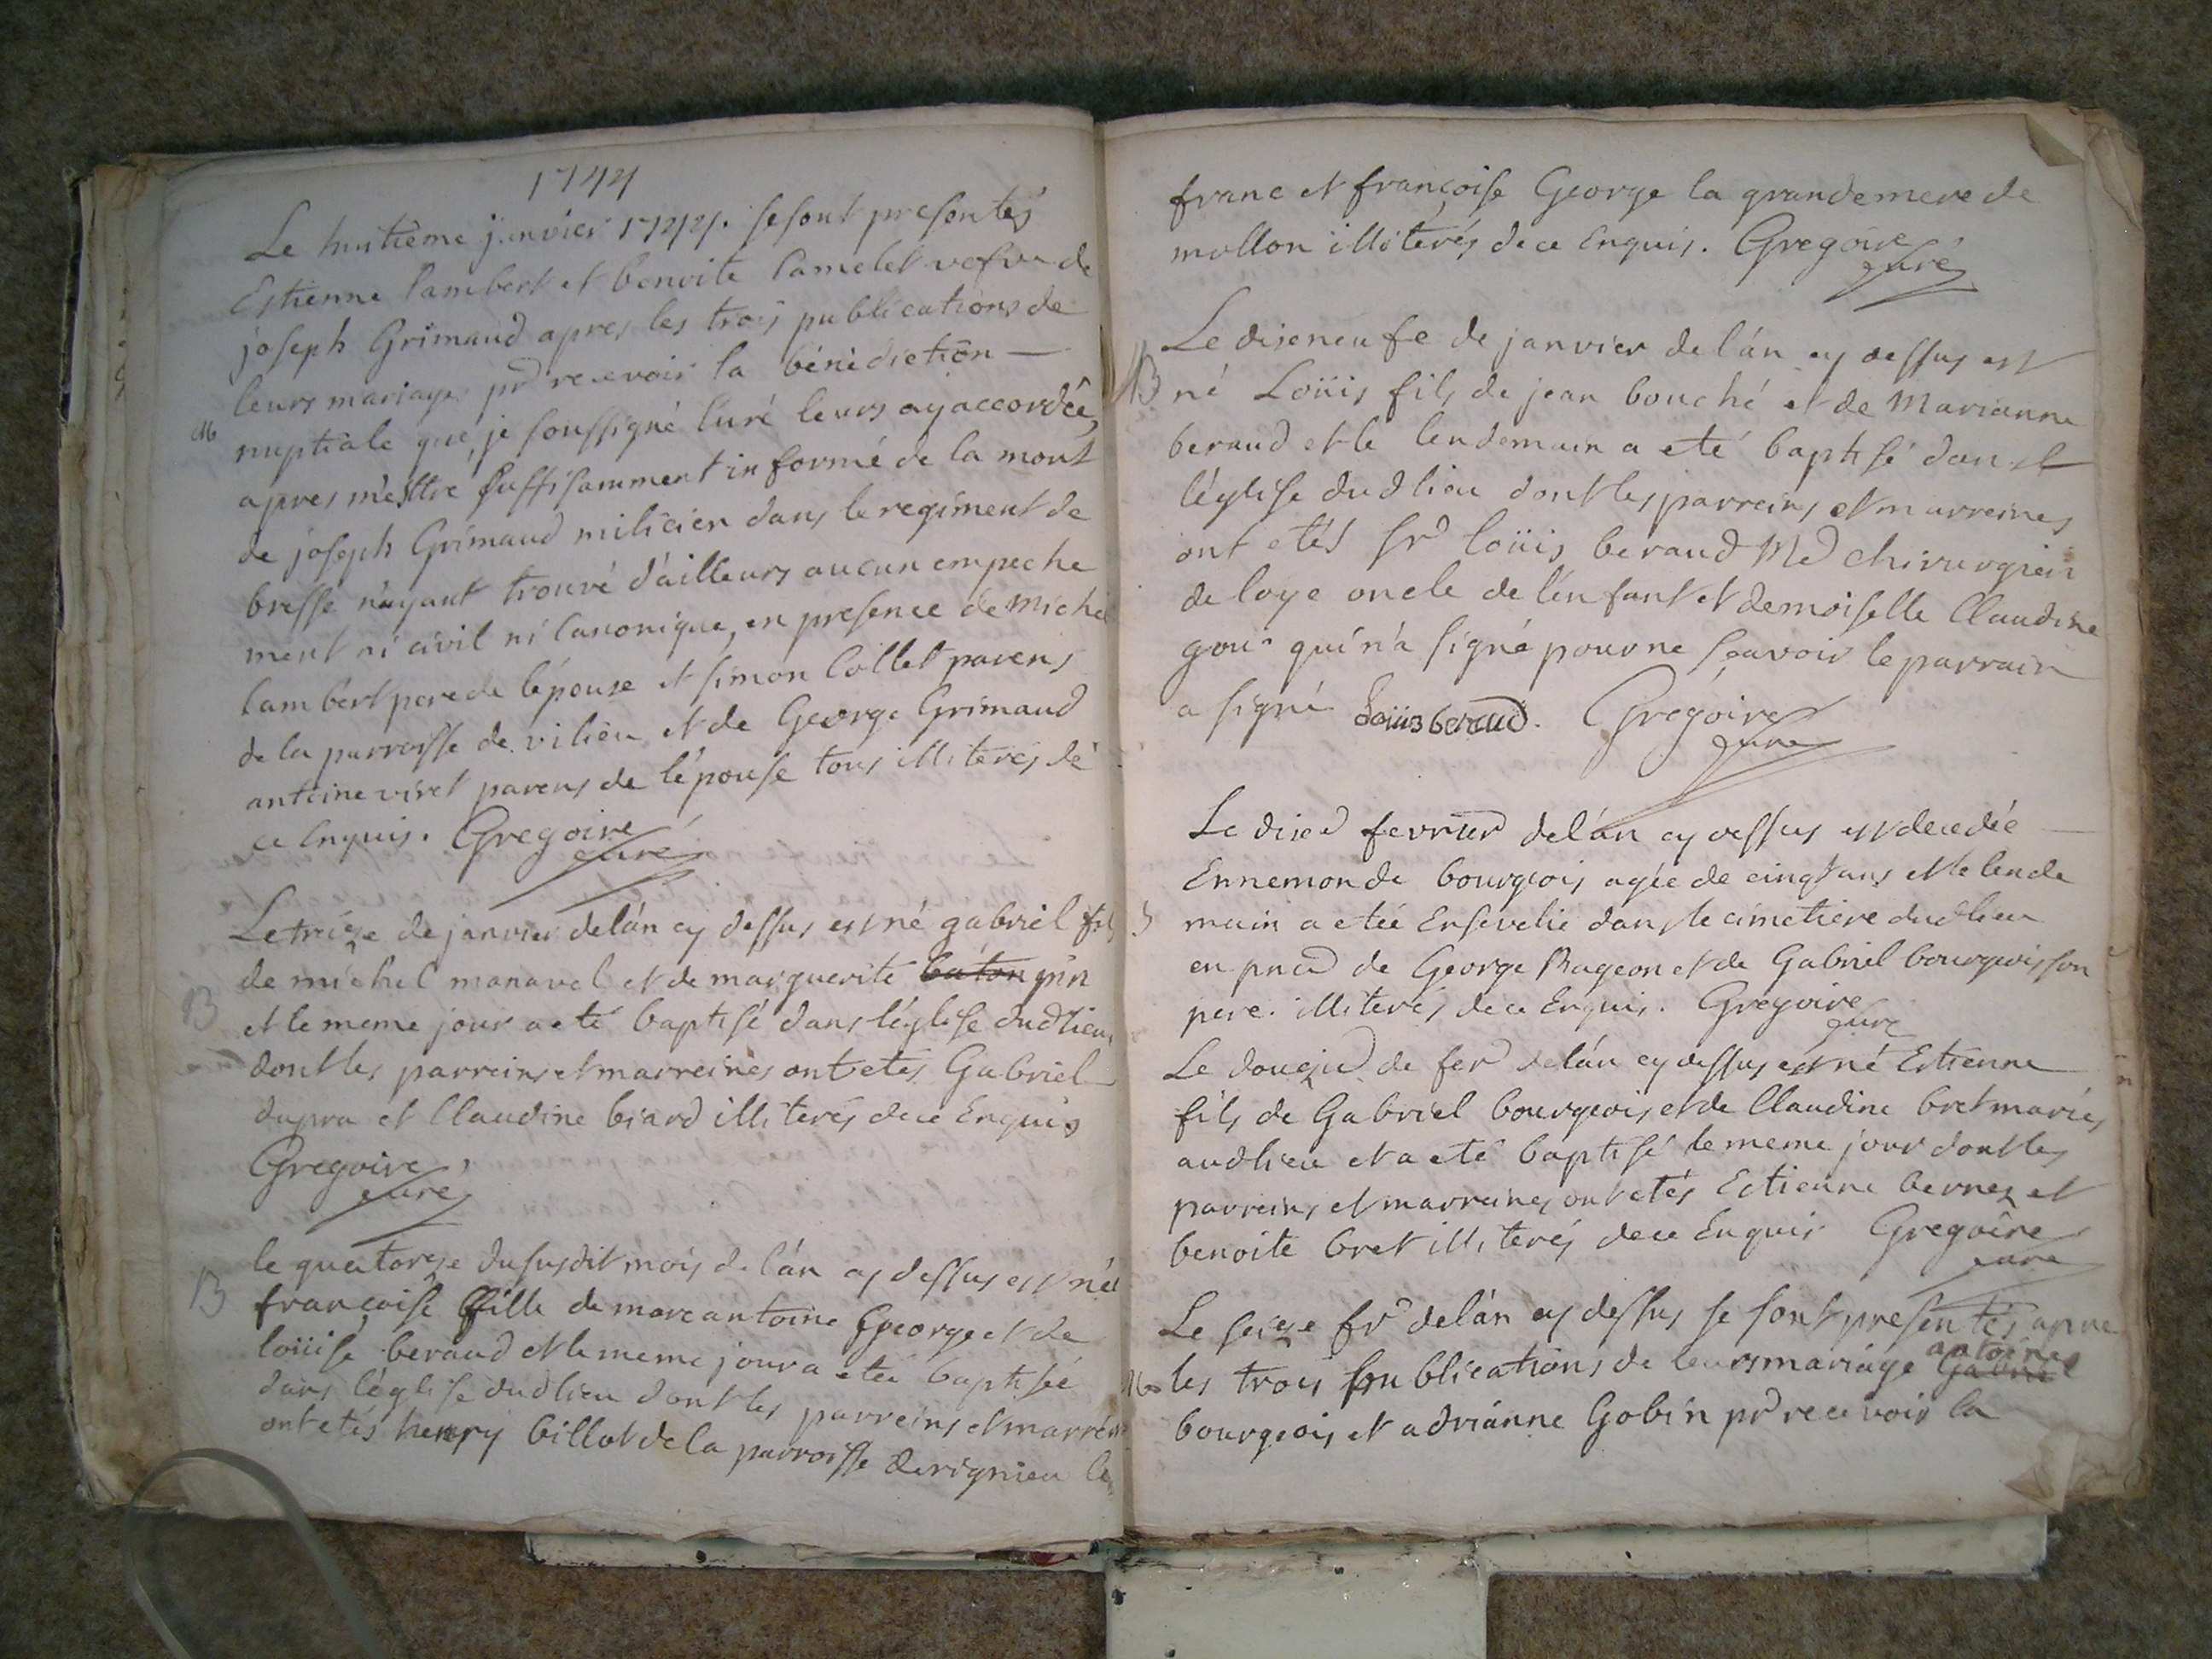 1744
Le huitième janvier 1744. se sont presentés
Estienne lambert et benoite Camelet vefve de
joseph Grimaud apres les trois publications de
leurs mariages pr recevoir la bénédiction
M nuptiale que je soussigné Curé leurs ay accordée
apres m'estre suffisamment informé de la mort
de joseph Grimaud milicien dans le regiment de
bresse n'ayant trouvé d'ailleurs aucun empeche
ment ni civil ni Canonique, en presence de Michel
lambert pere de l'épouse et simon Collet parens
de la parroisse de vilieu et de George Grimaud
antoine viret parens de l'épouse tous illiterés de
ce Enquis. Gregoire
curé
Le treize de janvier de l'án cy dessus est né gabriel fils
de michel manavel et de marguerite pin
B et le meme jour a eté baptisé dans l'église dud lieu
dont les parreins et marreines ont etés Gabriel
dupra et Claudine biard illiterés de ce Enquis
Gregoire
curé
le quatorze du susdit mois de l'án cy dessus est née
B françoise fille de marc antoine George et de
loüise beraud et le meme jour a etée baptisée
dans l'église dud lieu dont les parreins et marreines
ont etés henry billot de la parroisse de rignieu le
franc et françoise George la grandemere de
mollon illiterés de ce Enquis. Gregoire
curé
Le diseneufe de janvier de l'án cy dessus est
B né Loüis fils de jean bouché et de Marianne
beraud et le lendemain a eté baptisé dans
l'église dud lieu dont les parreins et marreines
ont etés sr loüis beraud Me chirurgien
de loye oncle de l'enfant et demoiselle Claudine
qui n'a signé pour ne sçavoir le parrain
a signé Loüis beraud. Gregoire
curé
Le fevrier de l'án cy dessus est decedée
Ennemonde bourgeois agée de cinq ans et le lende
S main a etée Ensevelie dans le cimetiere dud lieu
en pnce de George Rageon et de Gabriel bourgeois son
pere. illiterés de ce Enquis. Gregoire
curé
Le de fer de l'án cy dessus est né Estienne
fils de Gabriel bourgeois et de Claudine bret mariés
aud lieu et a eté baptisé le meme jour dont les
parreins et marreines ont etés Estienne bernez et
benoite bret illiterés de ce Enquis Gregoire
curé
Le seize fr de l'án cy dessus se sont presentés apres
antoine
M les trois publications de leurs mariage Gabriel
bourgeois et adriánne Gobin pr recevoir la